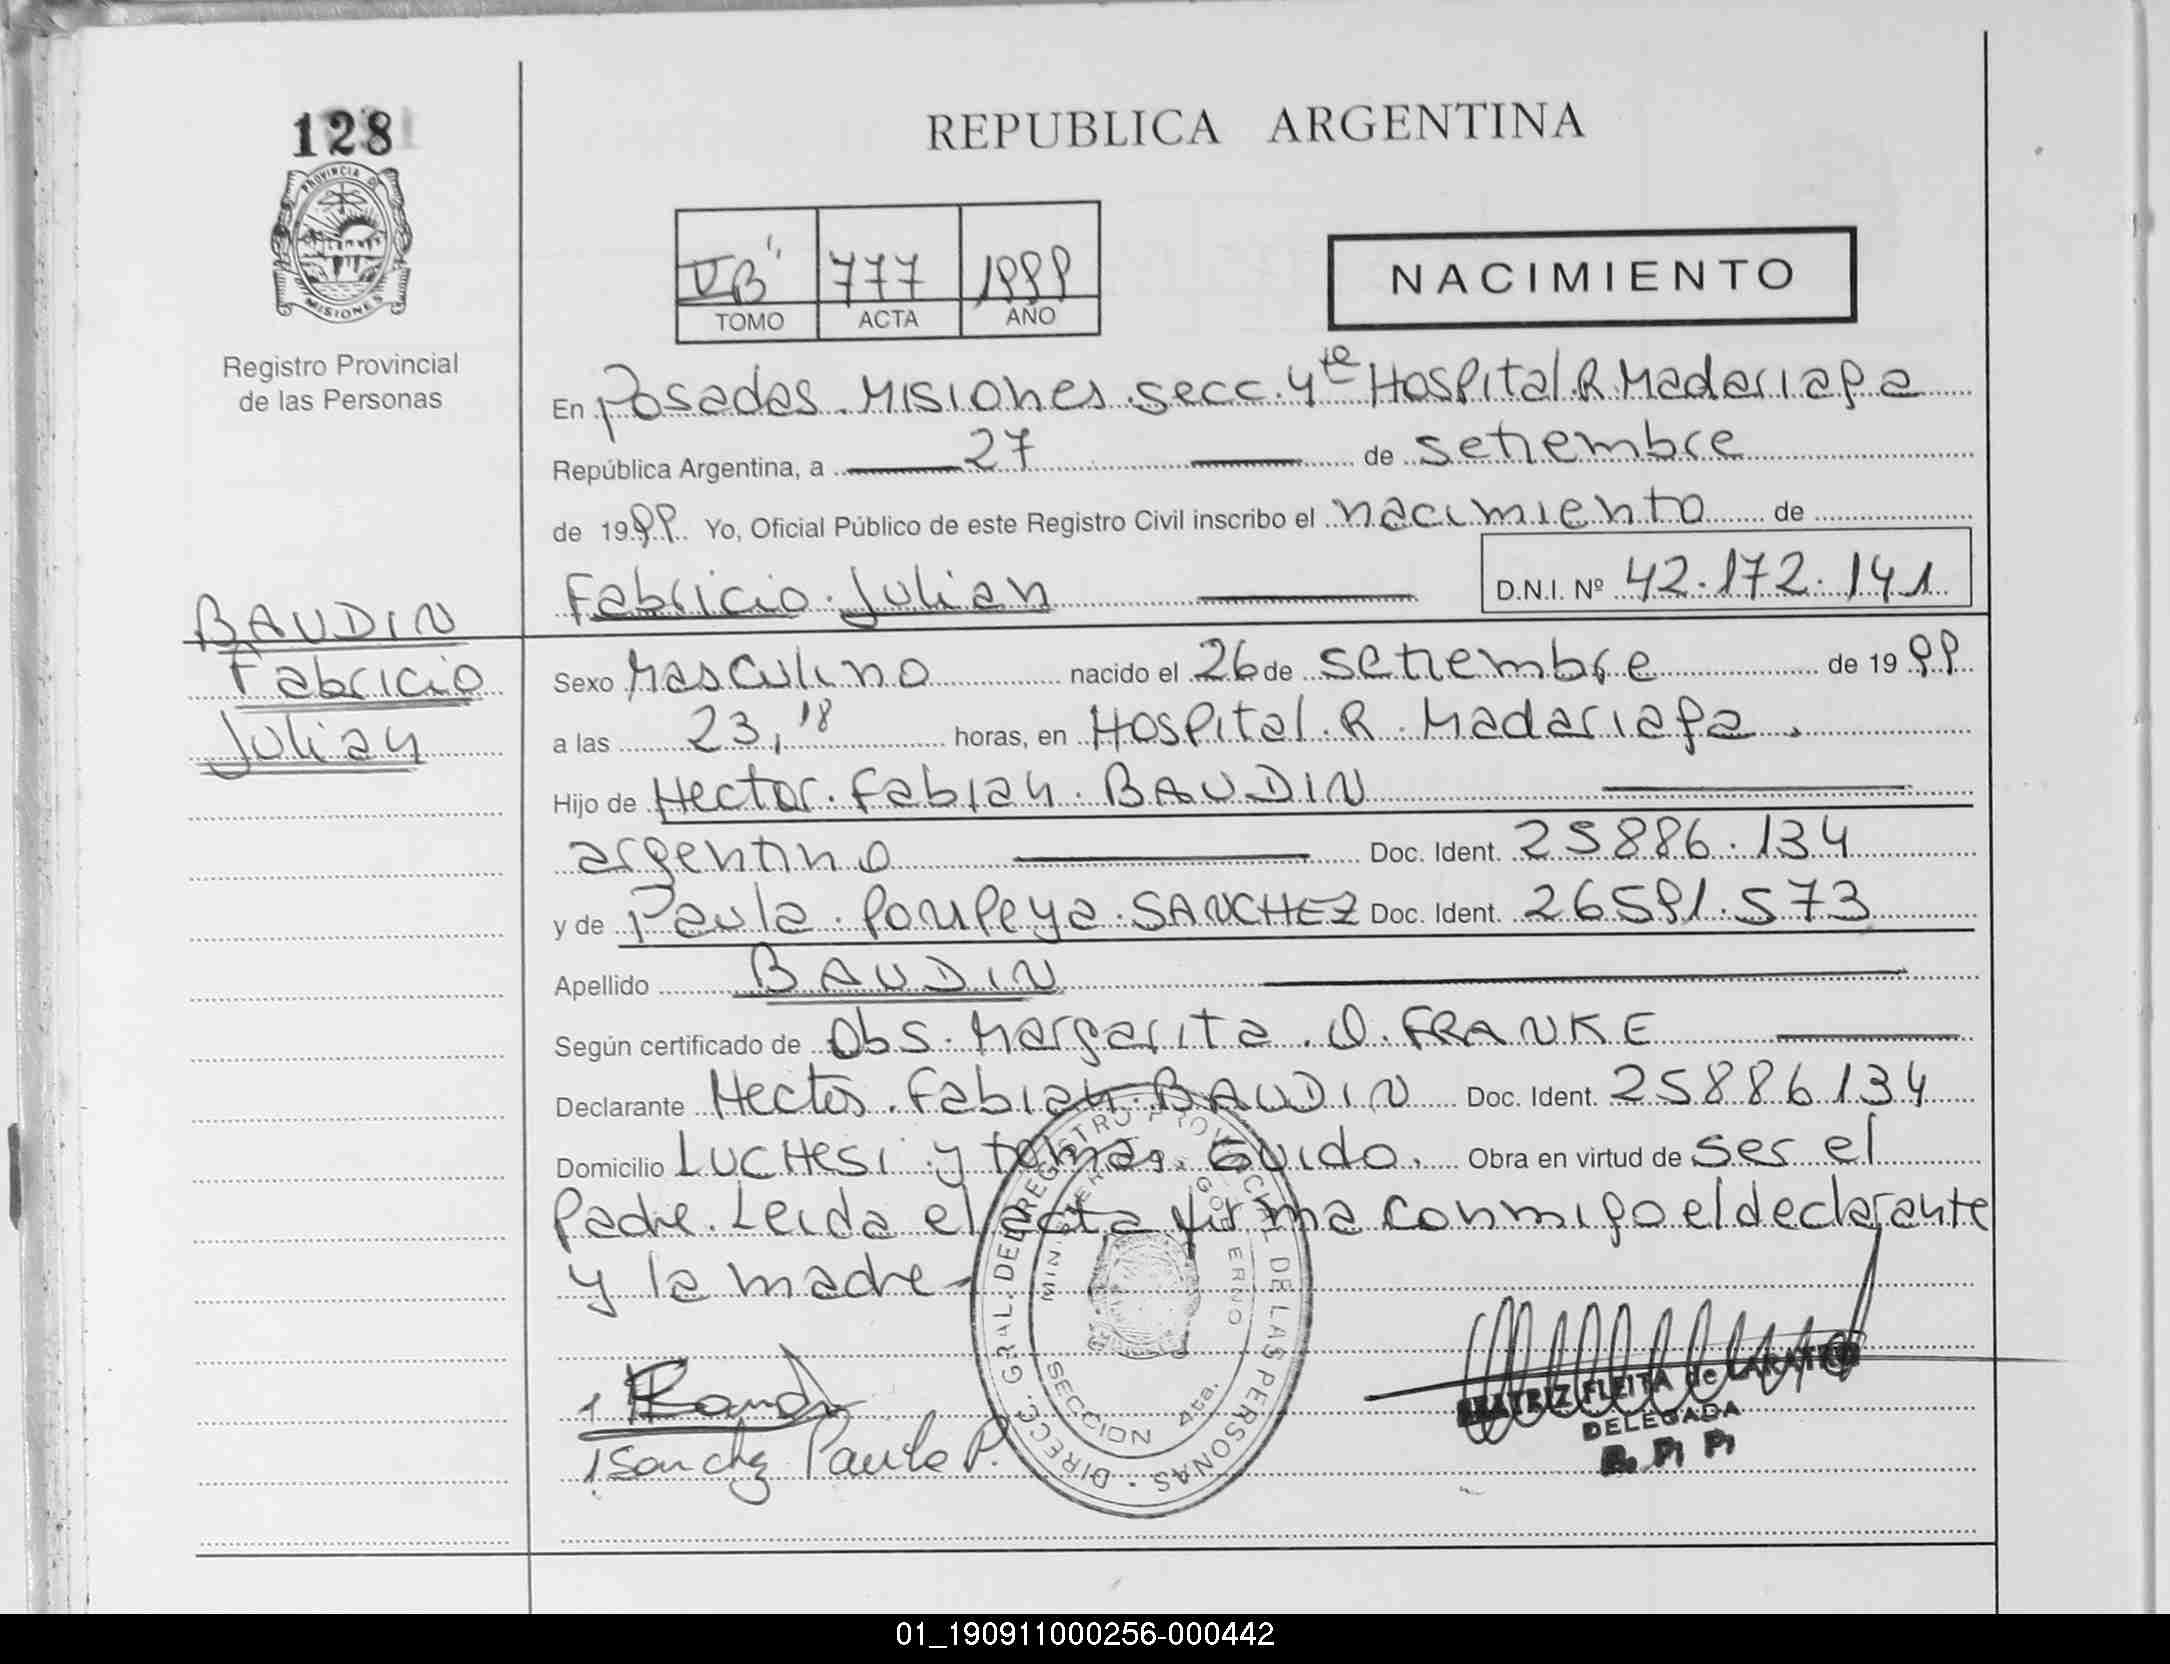 128
PROVINCIA DE
MISIONES
Registro Provincial
de las Personas
REPUBLICA ARGENTINA
777 1999
TOMO ACTA AÑO
NACIMIENTO
En Posadas. Misiones. secc. 4ta Hospital. R. Madariaga
República Argentina, a 27 de setiembre
de 1999. Yo, Oficial Público de este Registro Civil inscribo el nacimiento de
Fabricio. Julian D.N.I. Nº 42.172.141
BAUDIN
Fabricio
Julian
Sexo Masculino nacido el 26 de setiembre de 1999
a las 23,18 horas, en Hospital. R. Madariaga.
Hijo de Hector. Fabian. BAUDIN
argentino Doc. Ident. 25886.134
y de Paula. Poupeya. SANCHEZ Doc. Ident. 26591.573
Apellido BAUDIN
Según certificado de Obs. Margarita. O. FRANKE
Declarante Hector. Fabian. BAUDIN Doc. Ident. 25886134
Domicilio LUCHESI y tomas. Guido. Obra en virtud de ser el
Padre. Leida el acta firma conmigo el declarante
y la madre
DIRECC. GRAL. DEL REGISTRO PROVINCIAL DE LAS PERSONAS
MINISTERIO GOBIERNO
SECCION 4ta.
Sanchez Paula P.
BEATRIZ FLEITA de
DELEGADA
R. P. P.
01_190911000256-000442